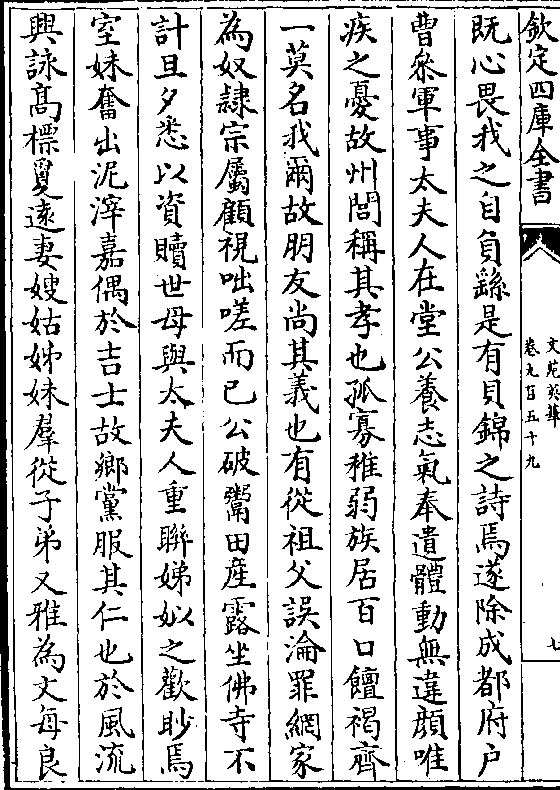 欽定四庫全書
文苑英華
卷九百五十九
七
既心畏我之自負繇是有貝錦之詩焉遂除成都府户
曹叅軍事太夫人在堂公養志氣奉遺體動無違顔唯
疾之憂故州閭稱其孝也孤寡稚弱族居百口饘褐齊
一莫名我爾故朋友尚其義也有從祖父誤淪罪網家
為奴隷宗屬顧視咄嗟而已公破鬻田産露坐佛寺不
計旦夕悉以資贖世母與太夫人重聨娣姒之歡眇焉
室妹奮出泥滓嘉偶於吉士故鄉黨服其仁也於風流
興詠髙標敻逺妻嫂姑姊妹羣從子弟又雅為文每良